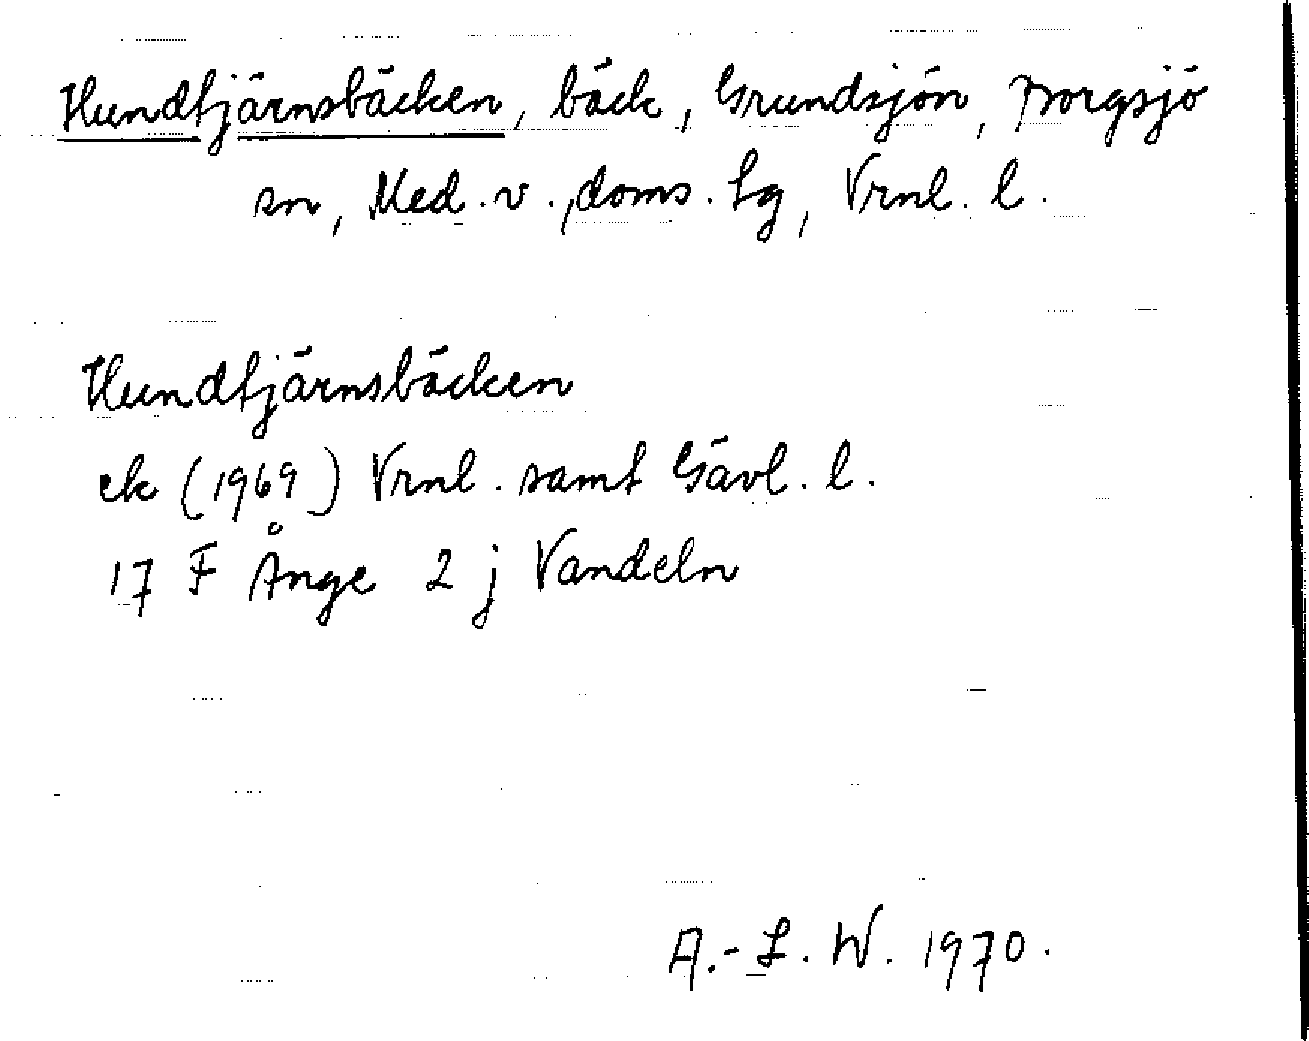 Hundtjärnsbäcken, bäck, Grundsjön, Borgsjö
sn, Med. v., doms. tg, Vrnl. l.
Hundtjärnsbäcken
ek (1969) Vrnl. samt Gävl. l.
17 F Ånge 2 j Vandeln
A.-L. W. 1970.